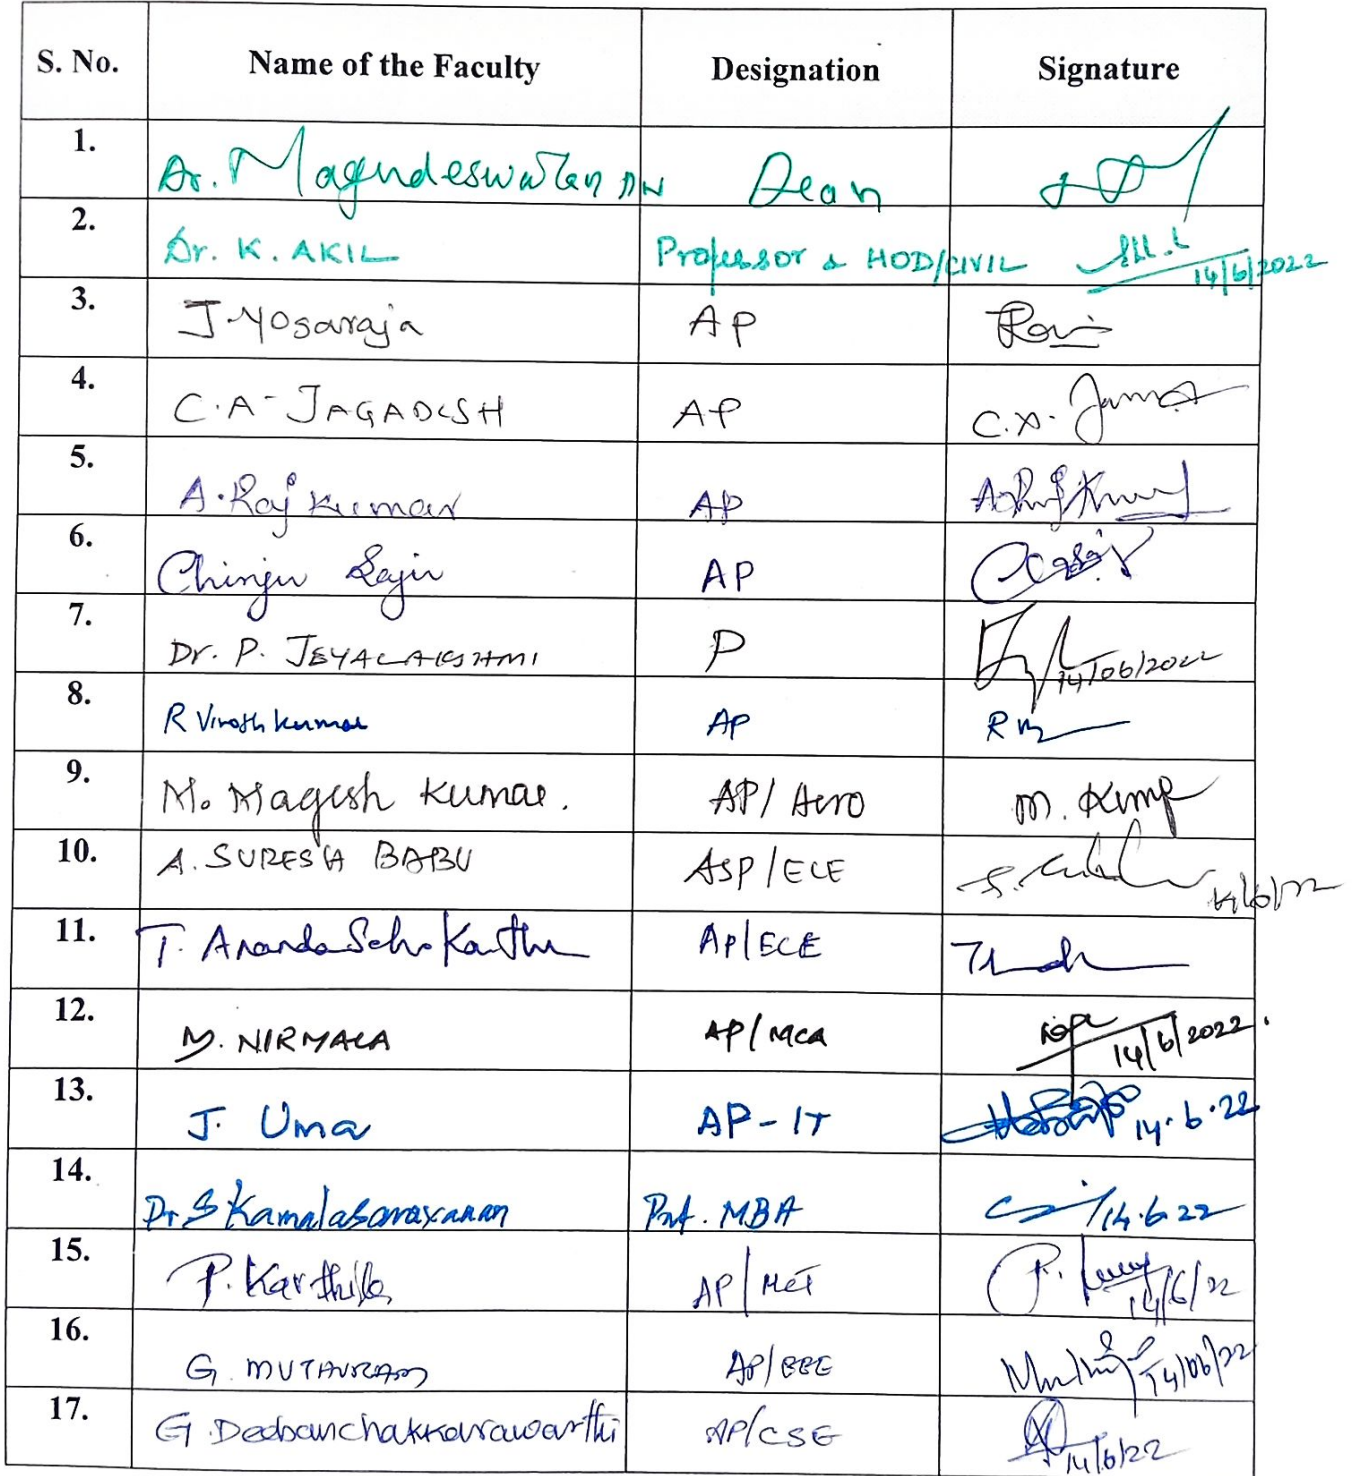 S. No. Name of the Faculty Designation Signature
1. Dr. Magudeswaran PN Dean
2. Dr. K. AKIL Professor & HOD/CIVIL 14/6/2022
3. J. Yogaraja AP
4. C.A-JAGADESH AP C.A.
5. A. Raj Kumar AP
6. Chinju Saju AP
7. Dr. P. JEYALAKSHMI P 14/06/2022
8. R Vinoth kumar AP R
9. M. Magesh Kumar. AP/Aero M.
10. A. SURESH BABU ASP/ECE
11. T. Ananda AP/ECE
12. M. NIRMALA AP/MCA 14/6/2022.
13. J. Uma AP-IT 14.6.22
14. Dr S Kamalasaravanan Prof. MBA 14.6.22
15. P. Karthik AP/MCT P. 14/6/22
16. G. MUTHURAM AP/EEE 14/06/22
17. G. AP/CSE 14/6/22